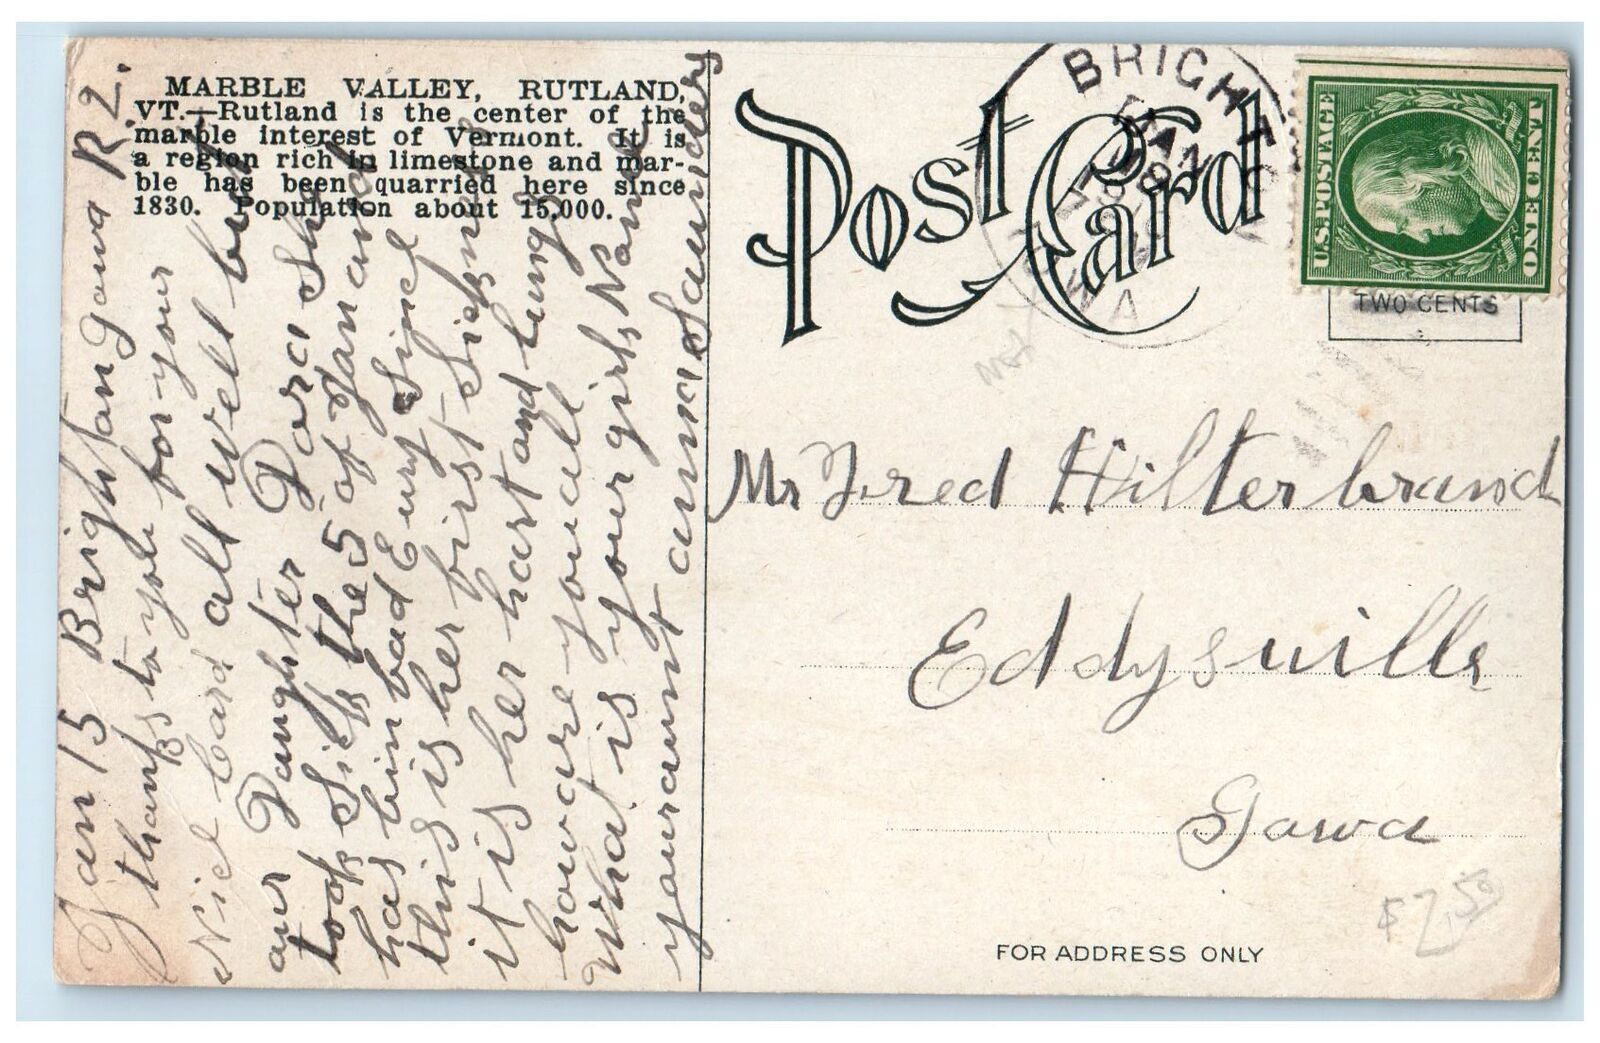 MARBLE VALLEY, RUTLAND,
VT.—Rutland is the center of the
marble interest of Vermont. It is
a region rich in limestone and mar-
ble has been quarried here since
1830. Population about 15,000.
Jan 15 Brightan Iowa R 2.
thanks to you for your
Nice Card all well but
our Daughter Dora She
took Sick the 5 of Jan and
has bin bad Eury Since
this is her first Sickness
it is her hart and lungs
how are you all
What is your girls Name
your aunt anna Saunders
Post Card
BRIGHT
IOWA
U.S. POSTAGE
ONE CENT
TWO CENTS
Mr Fred Hilterbrand
Eddysville
Iowa
$2.50
FOR ADDRESS ONLY